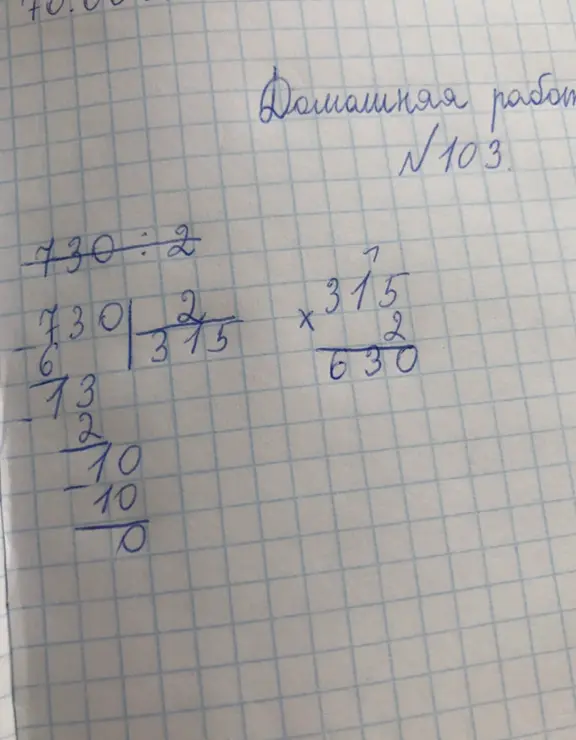 Домашняя
№103.
730 : 2
- 730 | 2
6 315
- 13
2
- 10
10
0
1
315
× 2
630